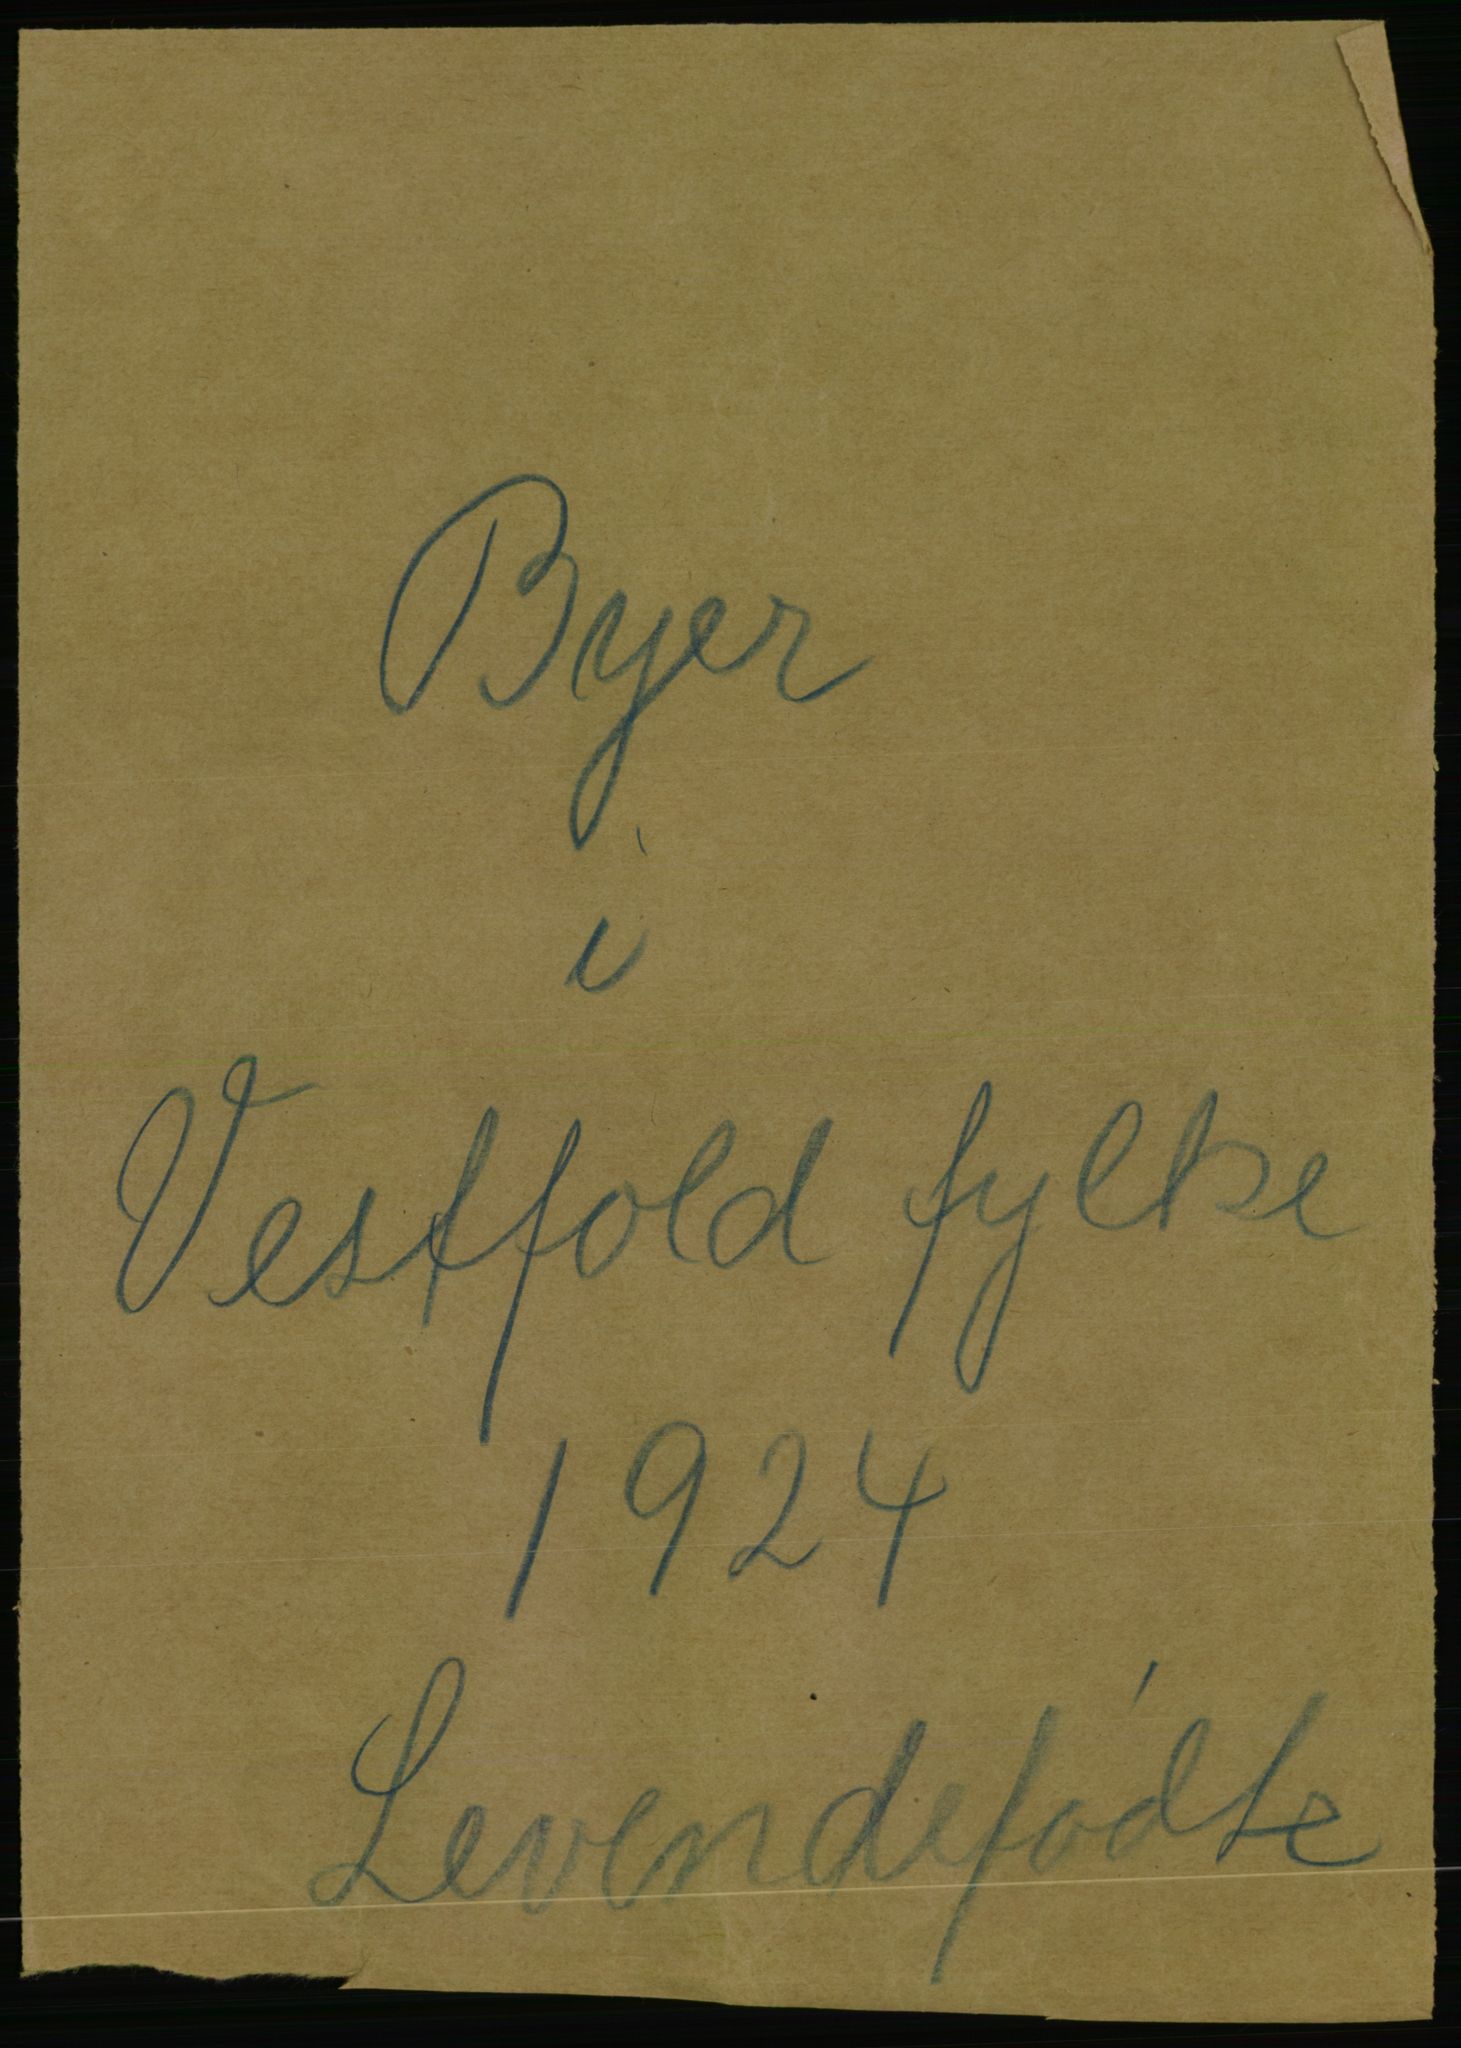 Byer
i
Vestfold fylke
1924
Levendefódte